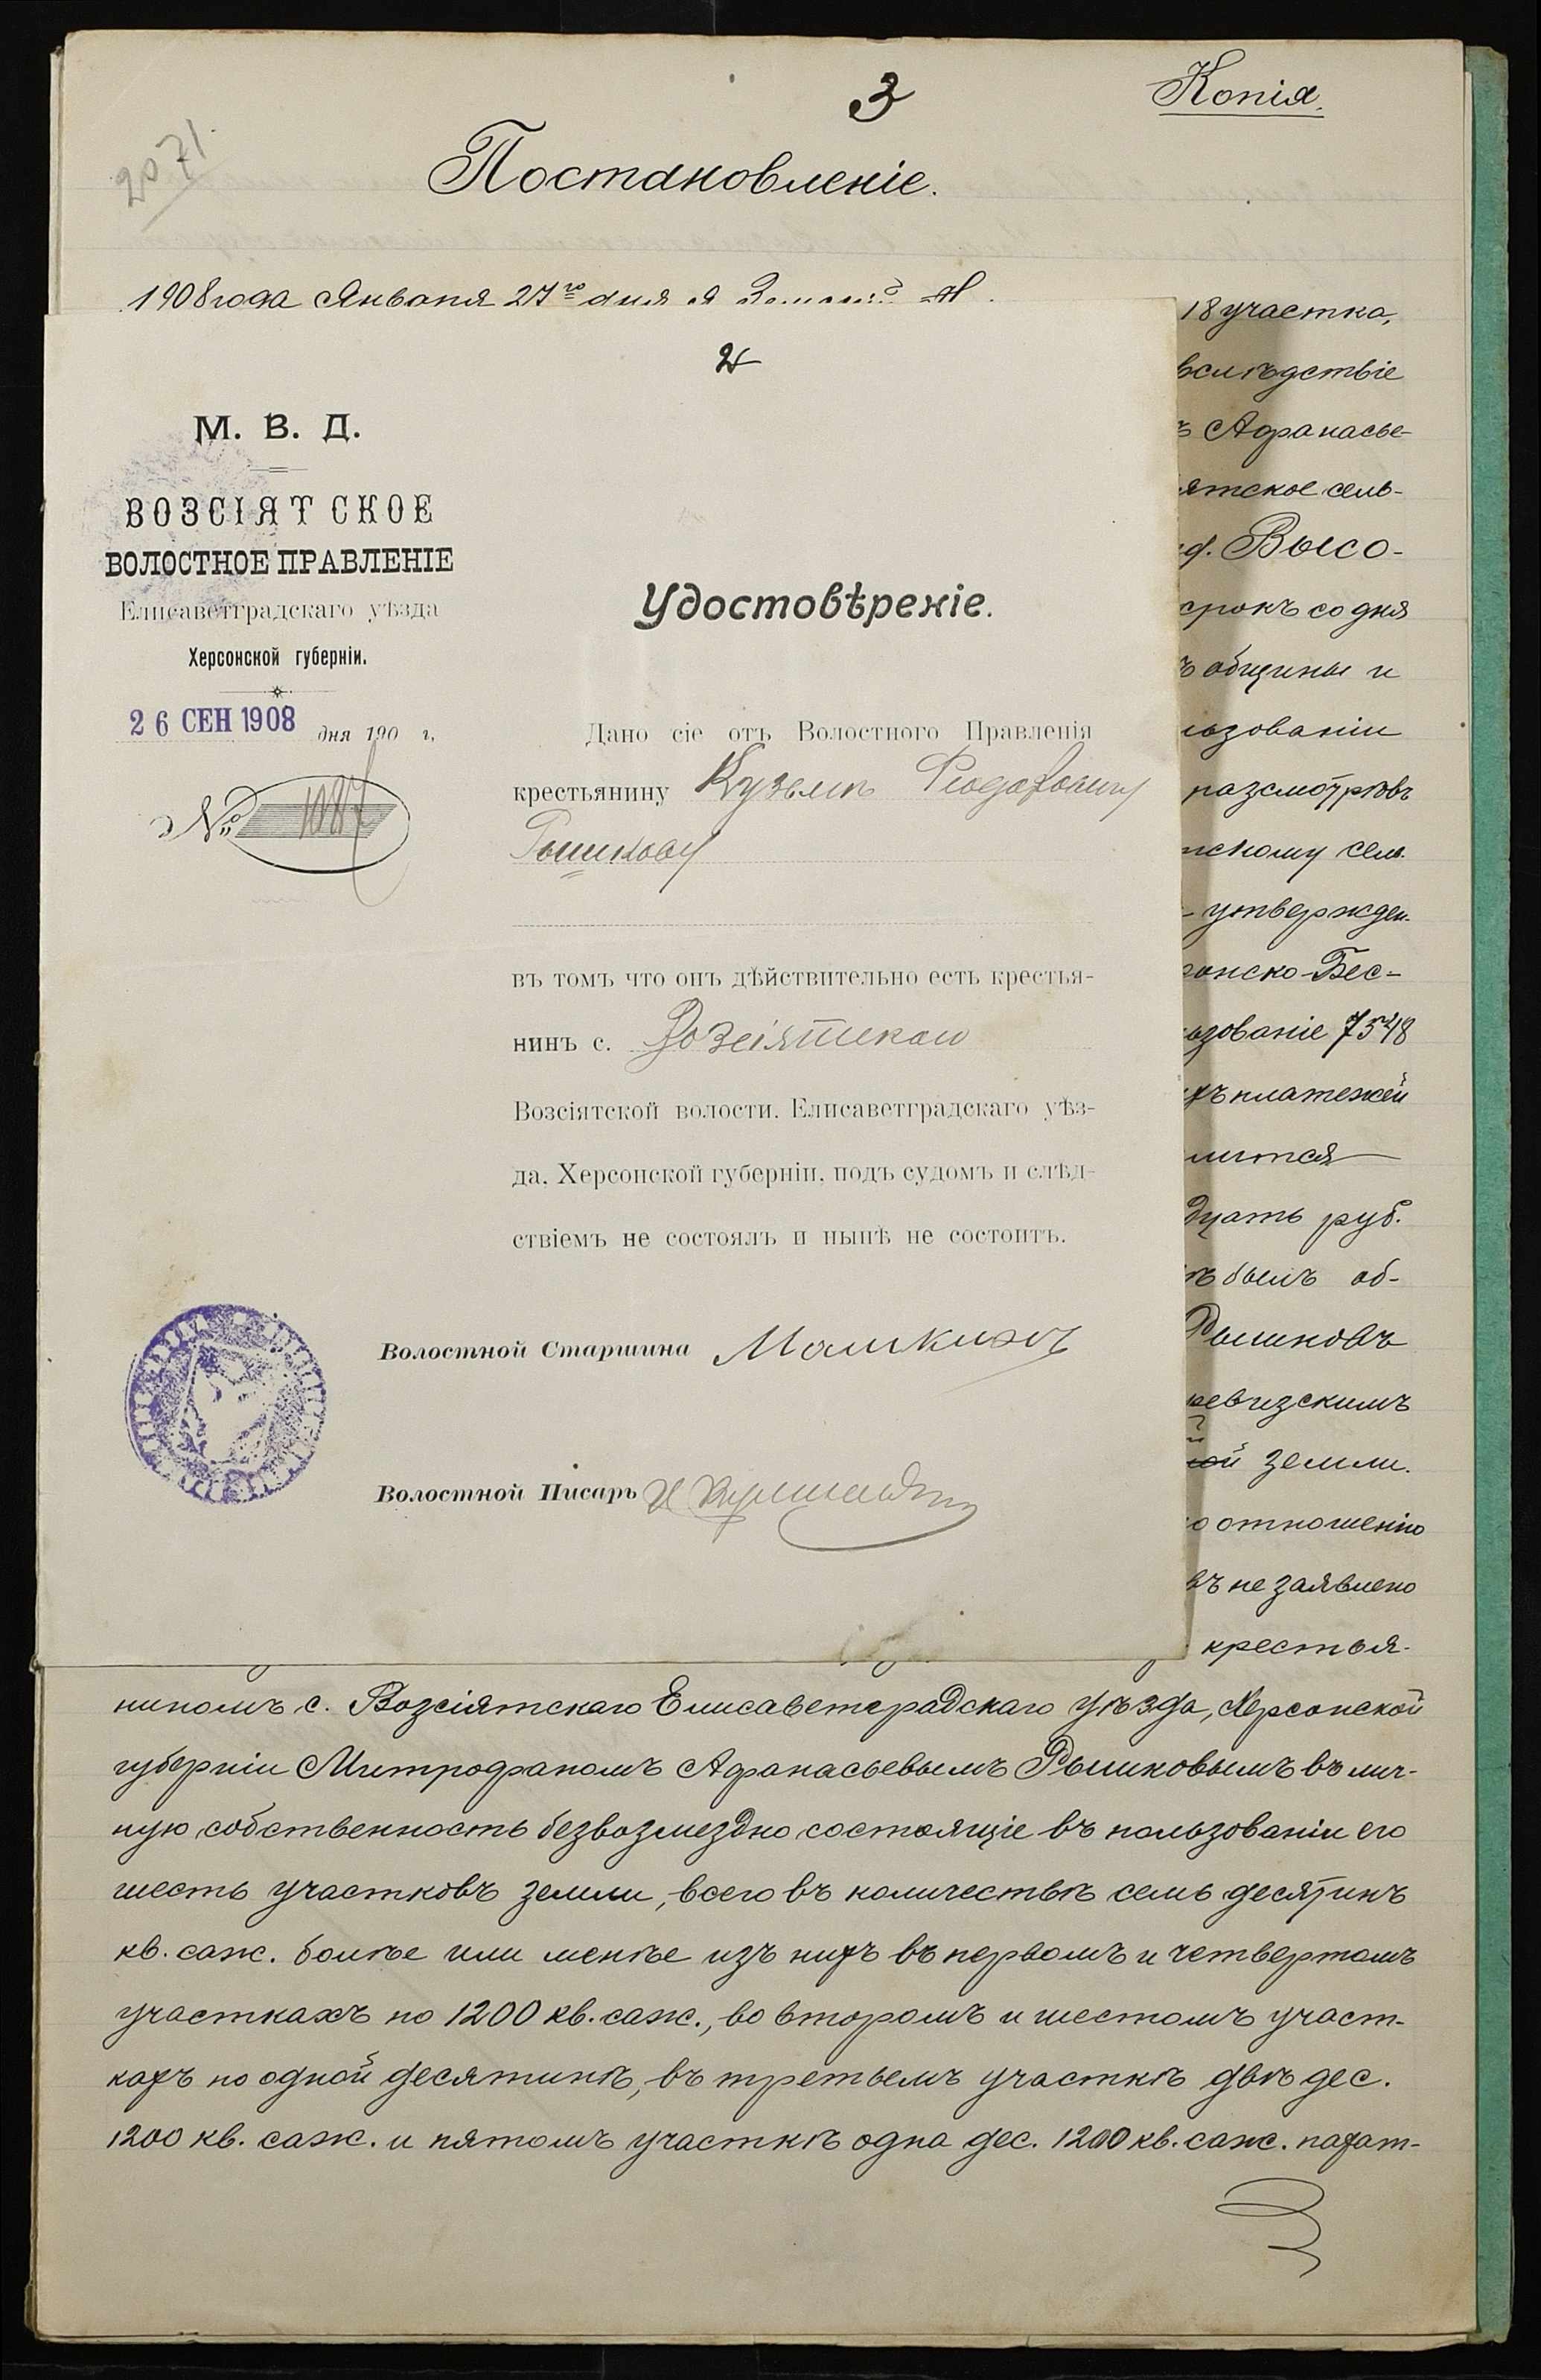 3
Копія.
2071.
Постановленіе.
1908 года Января 27го дня я
18 участка,
вслѣдствіе
Афанасье-
ятское сель-
Высо-
срокъ со дня
общины и
ьзованіи
разсмотрѣвъ
скому сел.
утвержден-
онско-Бес-
ьзованіе 7548
хъ платежей
лится
дцать руб.
былъ об-
Рышковъ
ревизскимъ
ой земли.
отношенію
въ не заявлено
крестья-
2
М. В. Д.
ВОЗСІЯТСКОЕ
ВОЛОСТНОЕ ПРАВЛЕНІЕ
Елисаветградскаго уѣзда
Херсонской губерніи.
26 СЕН 1908 дня 190 г.
№ 1087
Удостовѣреніе.
Дано сіе отъ Волостного Правленія
крестьянину Кузьмѣ Федоровичу
Рышкову
въ томъ что онъ дѣйствительно есть крестья-
нинъ с. Возсіятскаго
Возсіятской волости. Елисаветградскаго уѣз-
да, Херсонской губерніи, подъ судомъ и слѣд-
ствіемъ не состоялъ и нынѣ не состоитъ.
Волостной Старшина
Волостной Писарь
ниномъ с. Возсіятскаго Елисаветградскаго уѣзда, Херсонской
губерніи Митрофаномъ Афанасьевымъ Рышковымъ въ лич-
ную собственность безвозмездно состоящіе въ пользованіи его
шесть участковъ земли, всего въ количествѣ семь десятинъ
кв. саж. болѣе или менѣе изъ нихъ въ первомъ и четвертомъ
участкахъ по 1200 кв. саж., во второмъ и шестомъ участ-
кахъ по одной десятинѣ, въ третьемъ участкѣ двѣ дес.
1200 кв. саж. и пятомъ участкѣ одна дес. 1200 кв. саж. пахат-